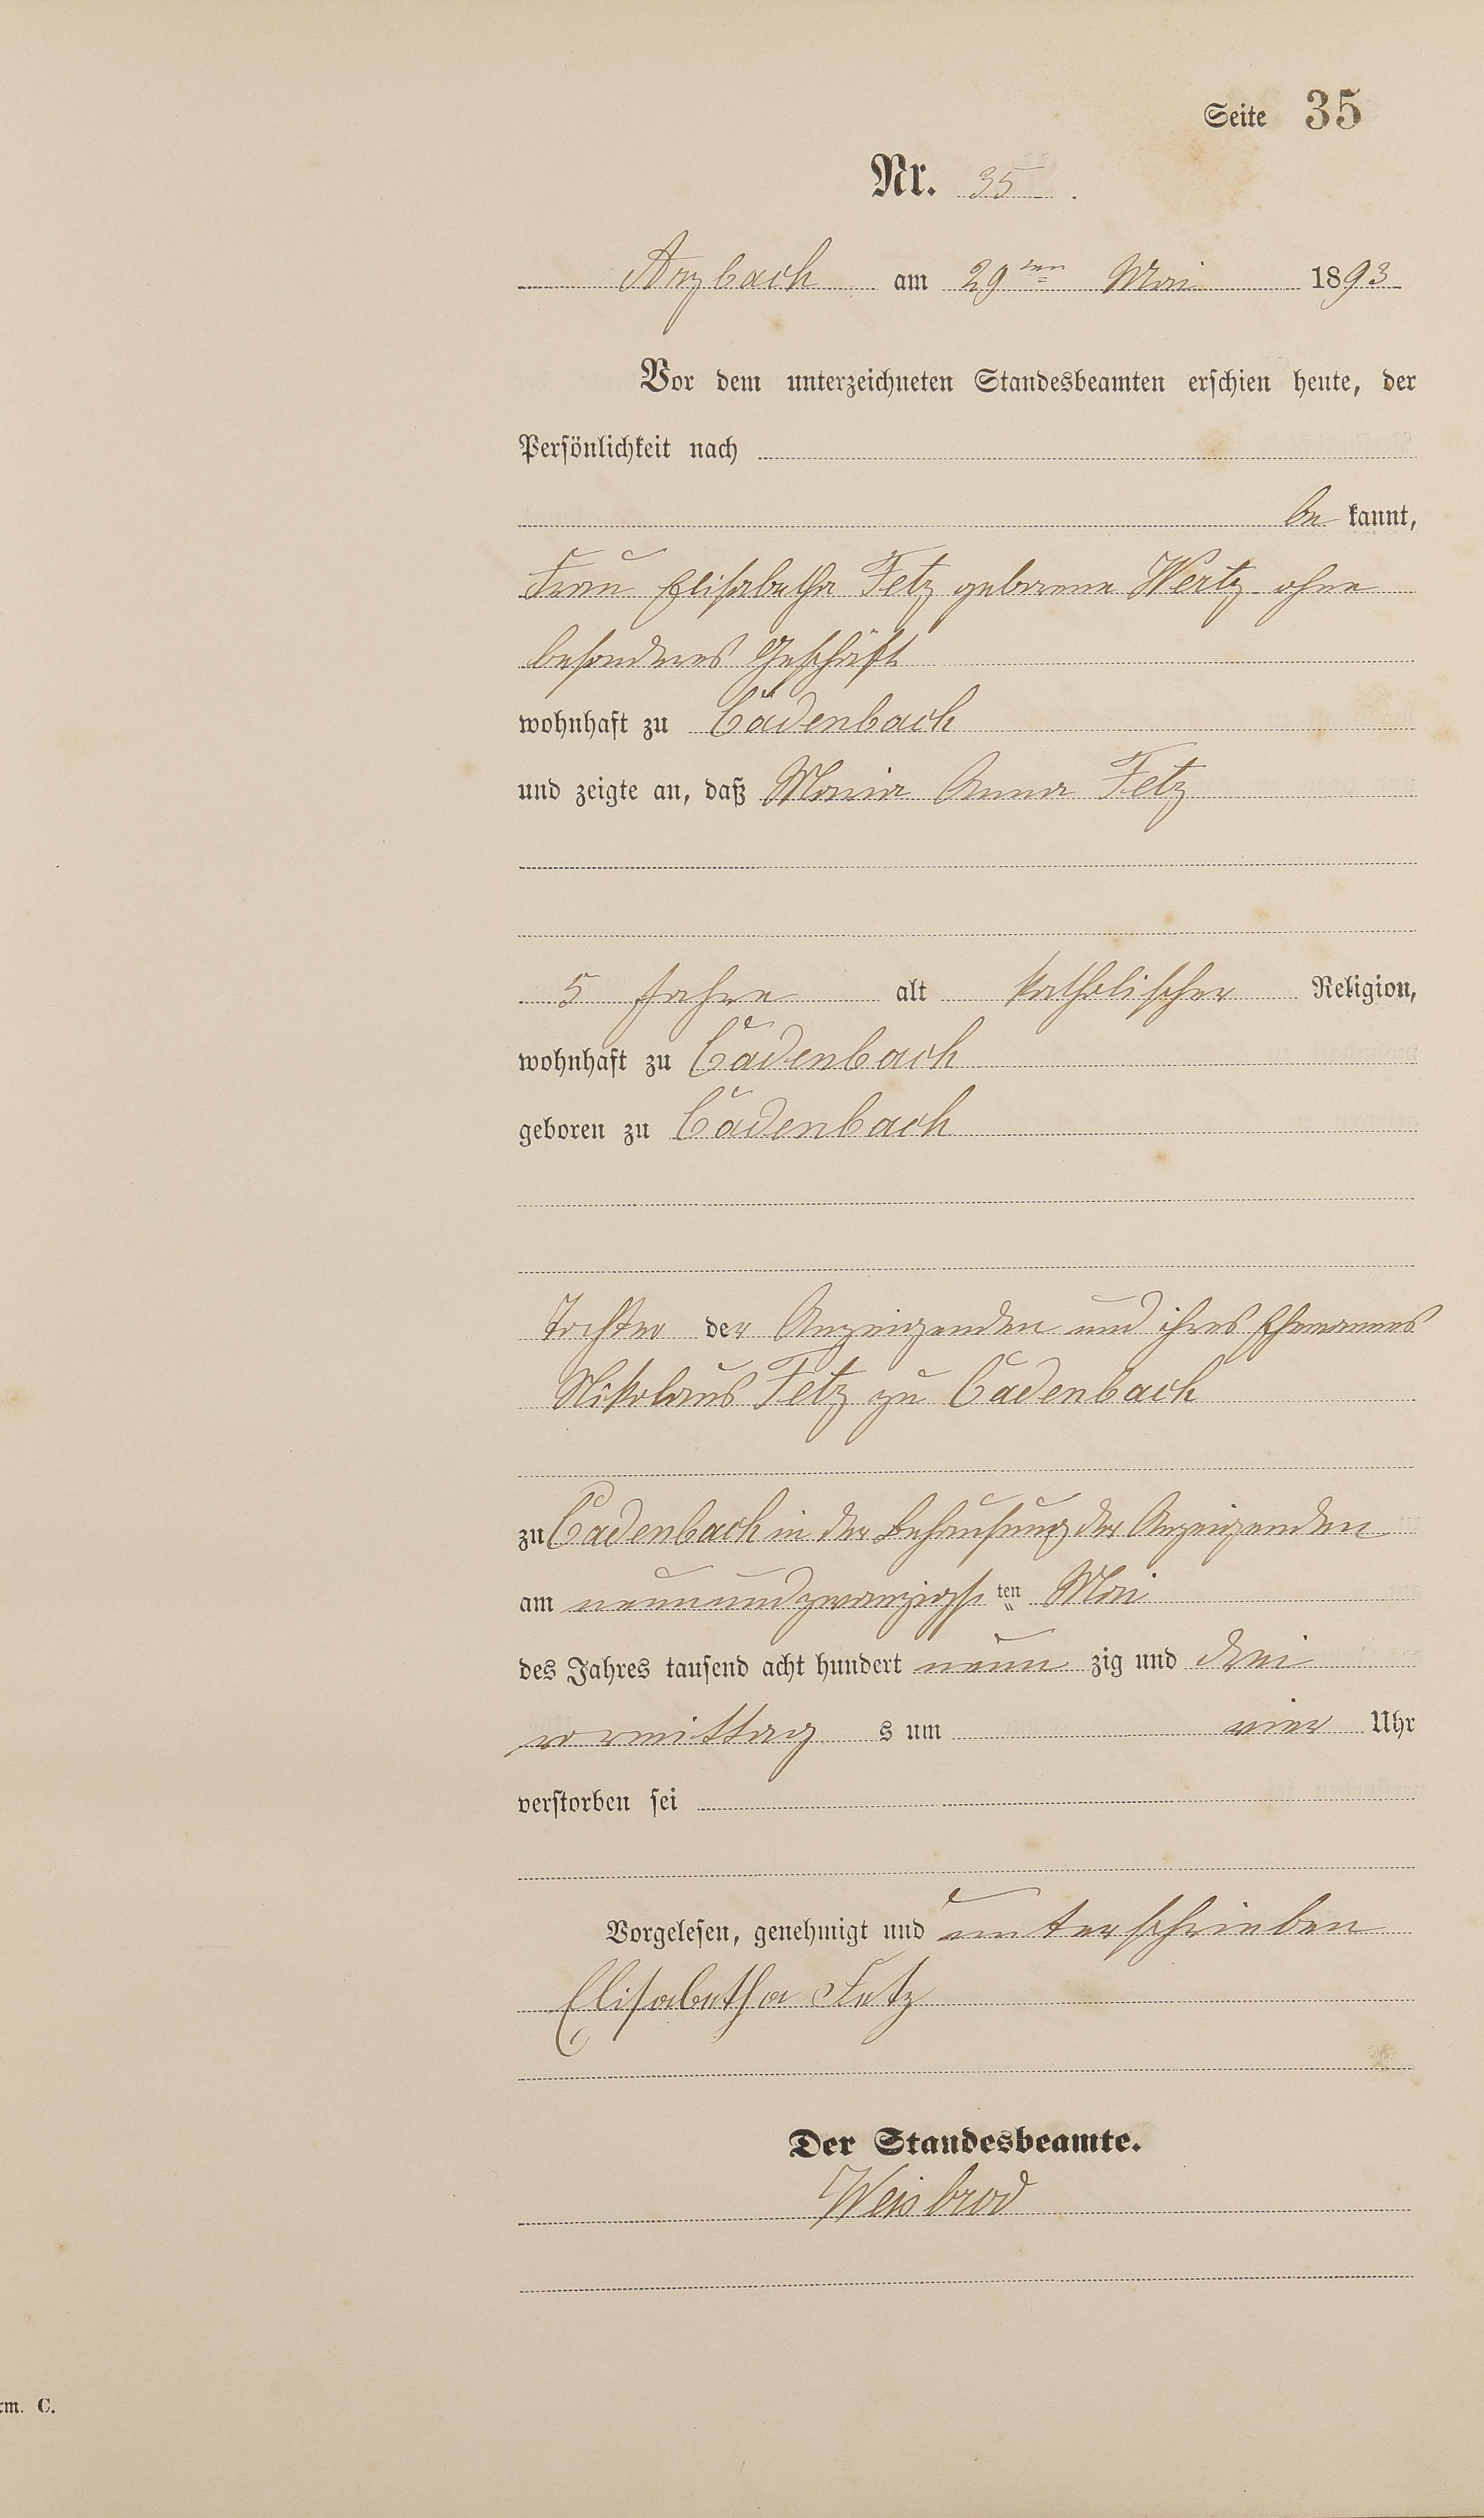 Seite 35
Nr. 35.
Arzbach am 29ten Mai 1893
Vor dem unterzeichneten Standesbeamten erschien heute, der
Persönlichkeit nach
be kannt,
Frau Elisabetha Fetz geborene Wertz ohne
besonderes Geschäft
wohnhaft zu Cadenbach
und zeigte an, daß Maria Anna Fetz
5 Jahre alt katholischer Religion,
wohnhaft zu Cadenbach
geboren zu Cadenbach
Tochter der Anzeigenden und ihres Ehemannes
Nikolaus Fetz zu Cadenbach
zu Cadenbach in der Behausung der Anzeigenden
am neunundzwanzigsten Mai
des Jahres tausend acht hundert neun zig und drei
vormittag s um vier Uhr
verstorben sei
Vorgelesen, genehmigt und unterschrieben
Elisabetha Fetz
Der Standesbeamte.
Weisbrod
rm. C.